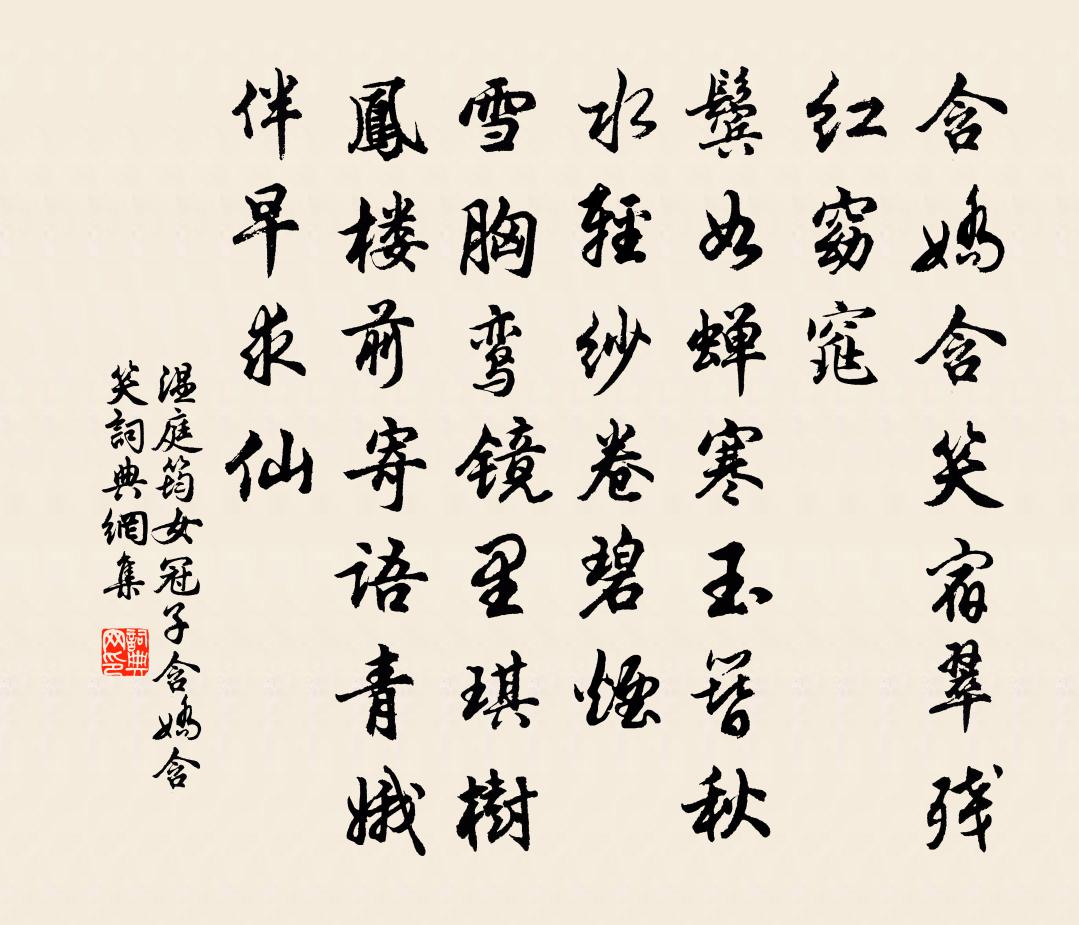 含嬌含笑宿翠残
红窈窕
鬓如蝉寒玉簪秋
水輕纱卷碧煙
雪胸鸾镜里琪樹
鳳楼前寄语青娥
伴早求仙
温庭筠女冠子含嬌含
笑詞典網集
詞典网印